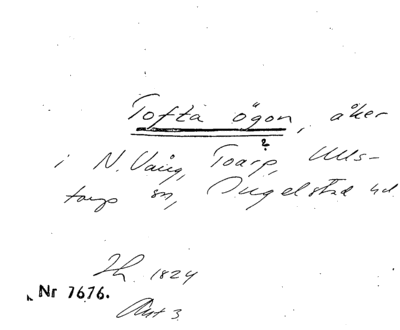 Tofta ögon, åker
?
i N. Vång, Toarp, Ulls-
torp sn, Ingelstad hd
1824
Nr 7676.
Akt 3